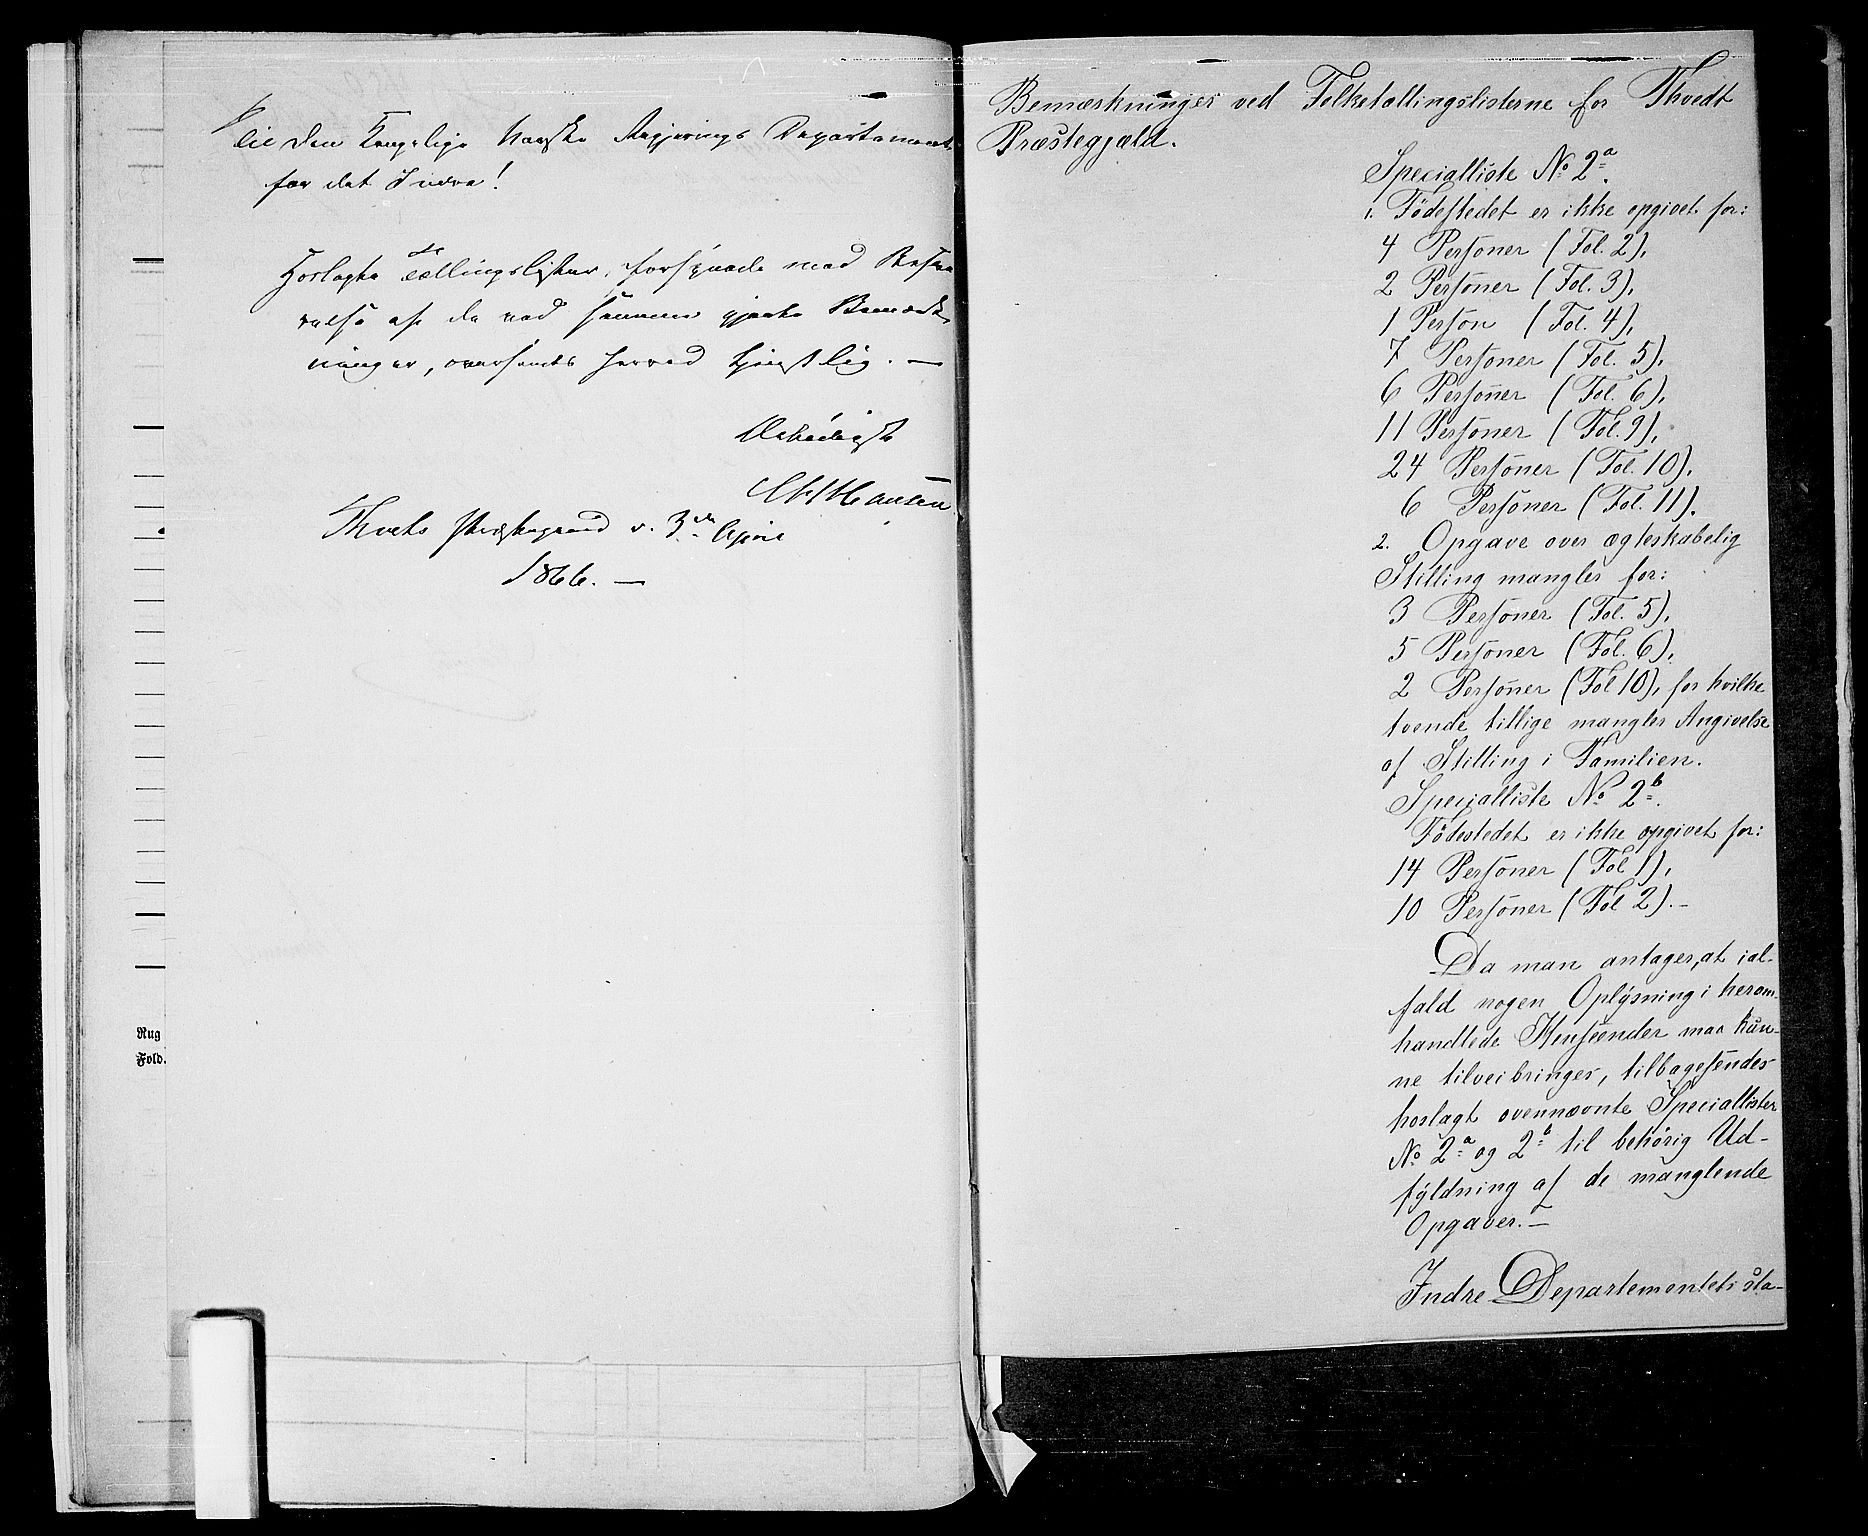 Til den Kongelige Norske Regjerings Departement
for det Indre!
Hoslagte Tællingslister, forsynede med Besva
relse af de ved samme gjorte Bemærk
ninger, oversendes herved tjenstlig. —
Ærbødigst
Hansen
Thveds Præstegaard d. 3die April
1866. —
Rug
Fold.
Bemærkninger ved Folketællingslisterne for Thvedt
Præstegjæld.
Specialliste No 2a.
1. Födestedet er ikke opgivet for:
4 Personer (Fol. 2),
2 Personer (Fol. 3),
1 Person (Fol. 4),
7 Personer (Fol. 5),
6 Personer (Fol. 6),
11 Personer (Fol. 9),
24 Personer (Fol. 10),
6 Personer (Fol. 11).
2. Opgave over ægteskabelig
Stilling mangler for:
3 Personer (Fol. 5),
5 Personer (Fol. 6),
2 Personer (Fol 10), for hvilke
tvende tillige mangler Angivelse
af Stilling i Familien.
Specialliste No 2b.
Födestedet er ikke opgivet for:
14 Personer (Fol 1),
10 Personer (Fol 2). —
Da man antager, at ial-
fald nogen Oplysning i herom-
handlede Henseender maa kun-
ne tilveibringes, tilbagesendes
hoslagt ovennævnte Speciallister
No 2a og 2b til behörig Ud-
fyldning af de manglende
Opgaver. —
Indre Departementets sta-